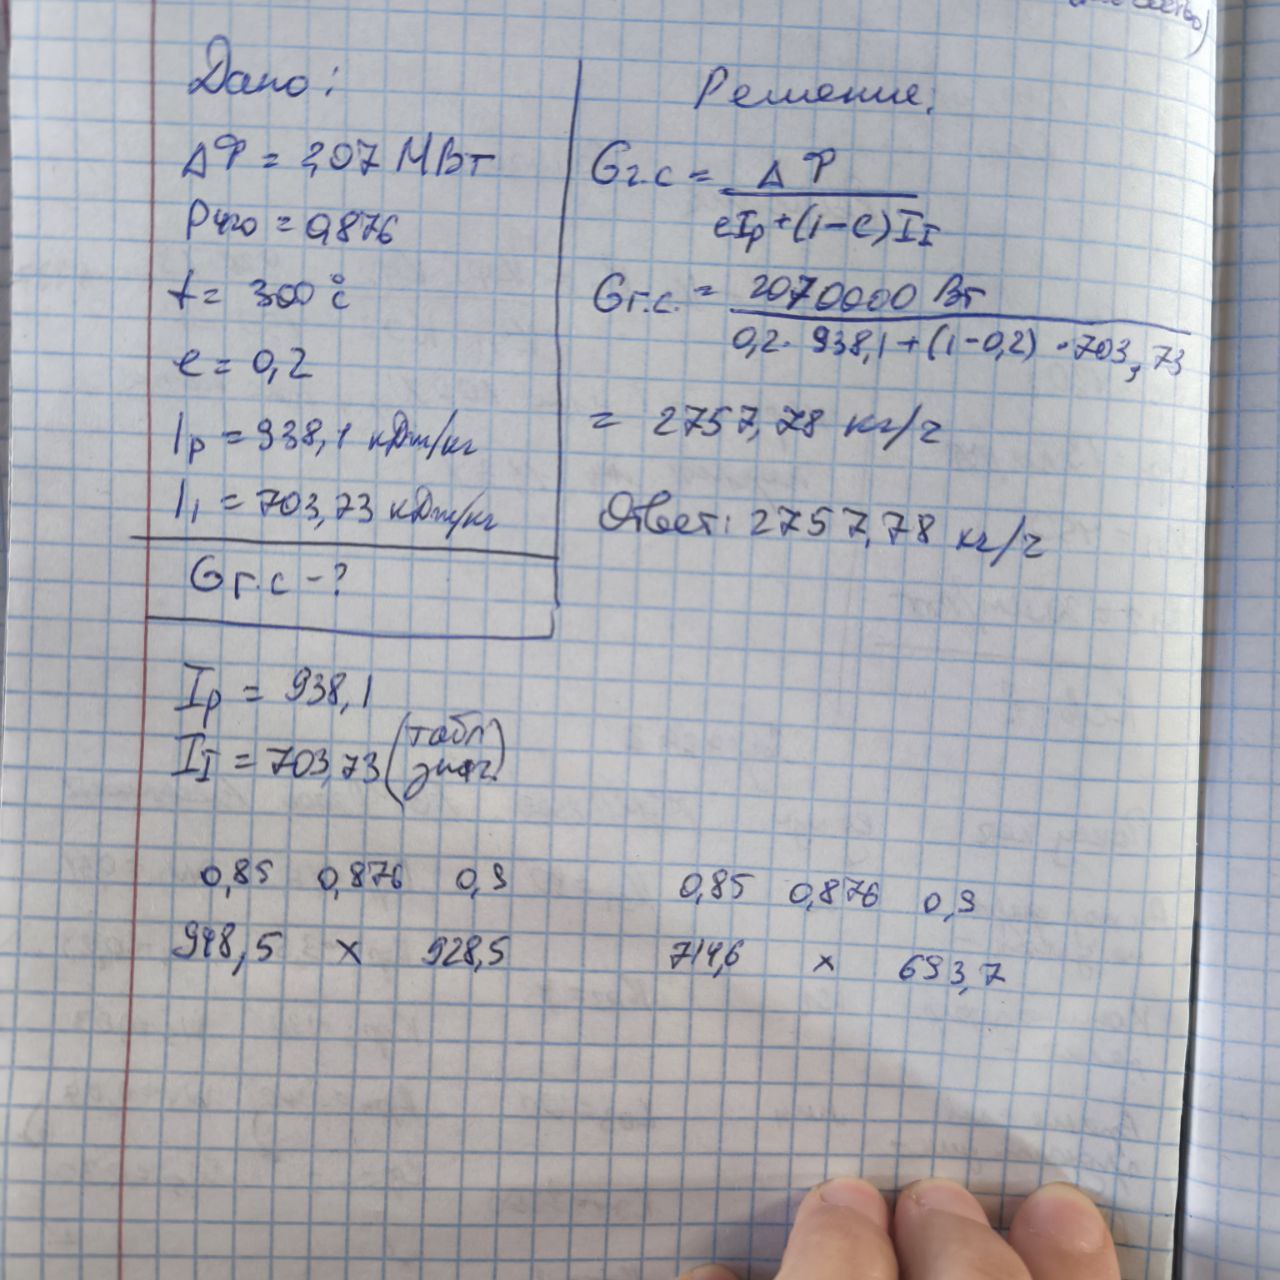 Дано:
ΔФ = 2,07 МВт
Pчго = 0,876
t = 300 °С
e = 0,2
Iр = 938,1 кДж/кг
I₁ = 703,73 кДж/кг
Gг.с - ?
Решение:
Gг.с = ΔФ / eIр + (1 - e) I_I
Gг.с. = 2070000 Вт / 0,2 · 938,1 + (1 - 0,2) · 703,73
= 2757,78 кг/ч
Ответ: 2757,78 кг/ч
Iр = 938,1
I_I = 703,73 (табл знач.)
0,85 0,876 0,9
948,5 x 928,5
0,85 0,876 0,9
714,6 x 693,7